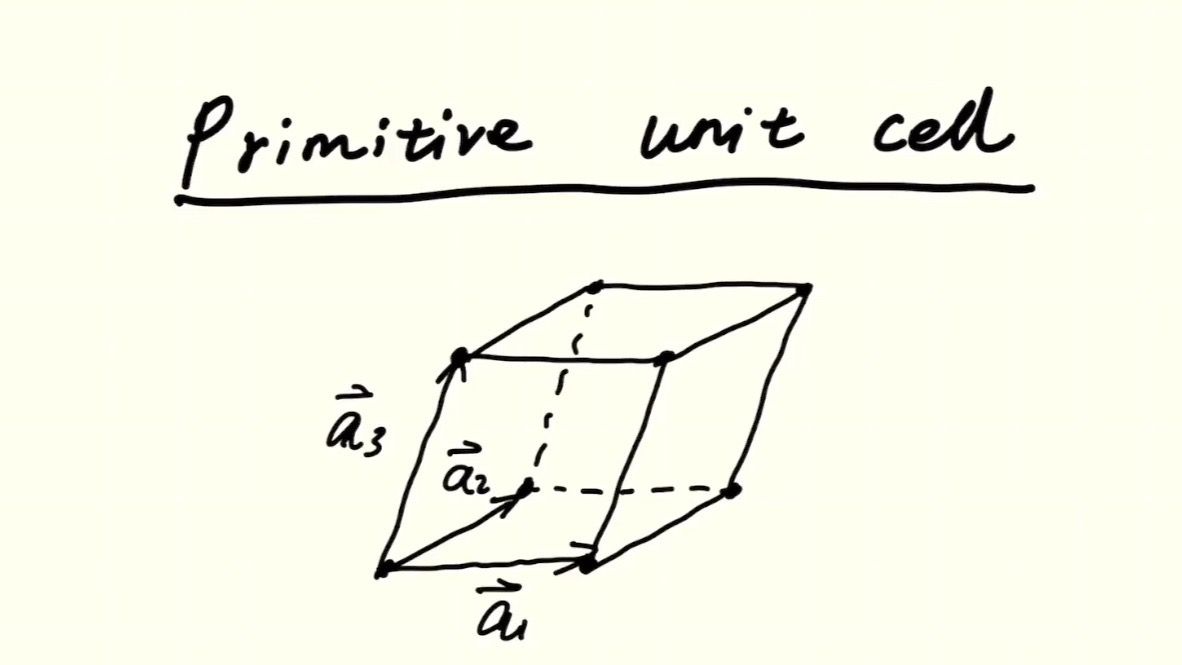 Primitive unit cell
a⃗3
a⃗2
a⃗1